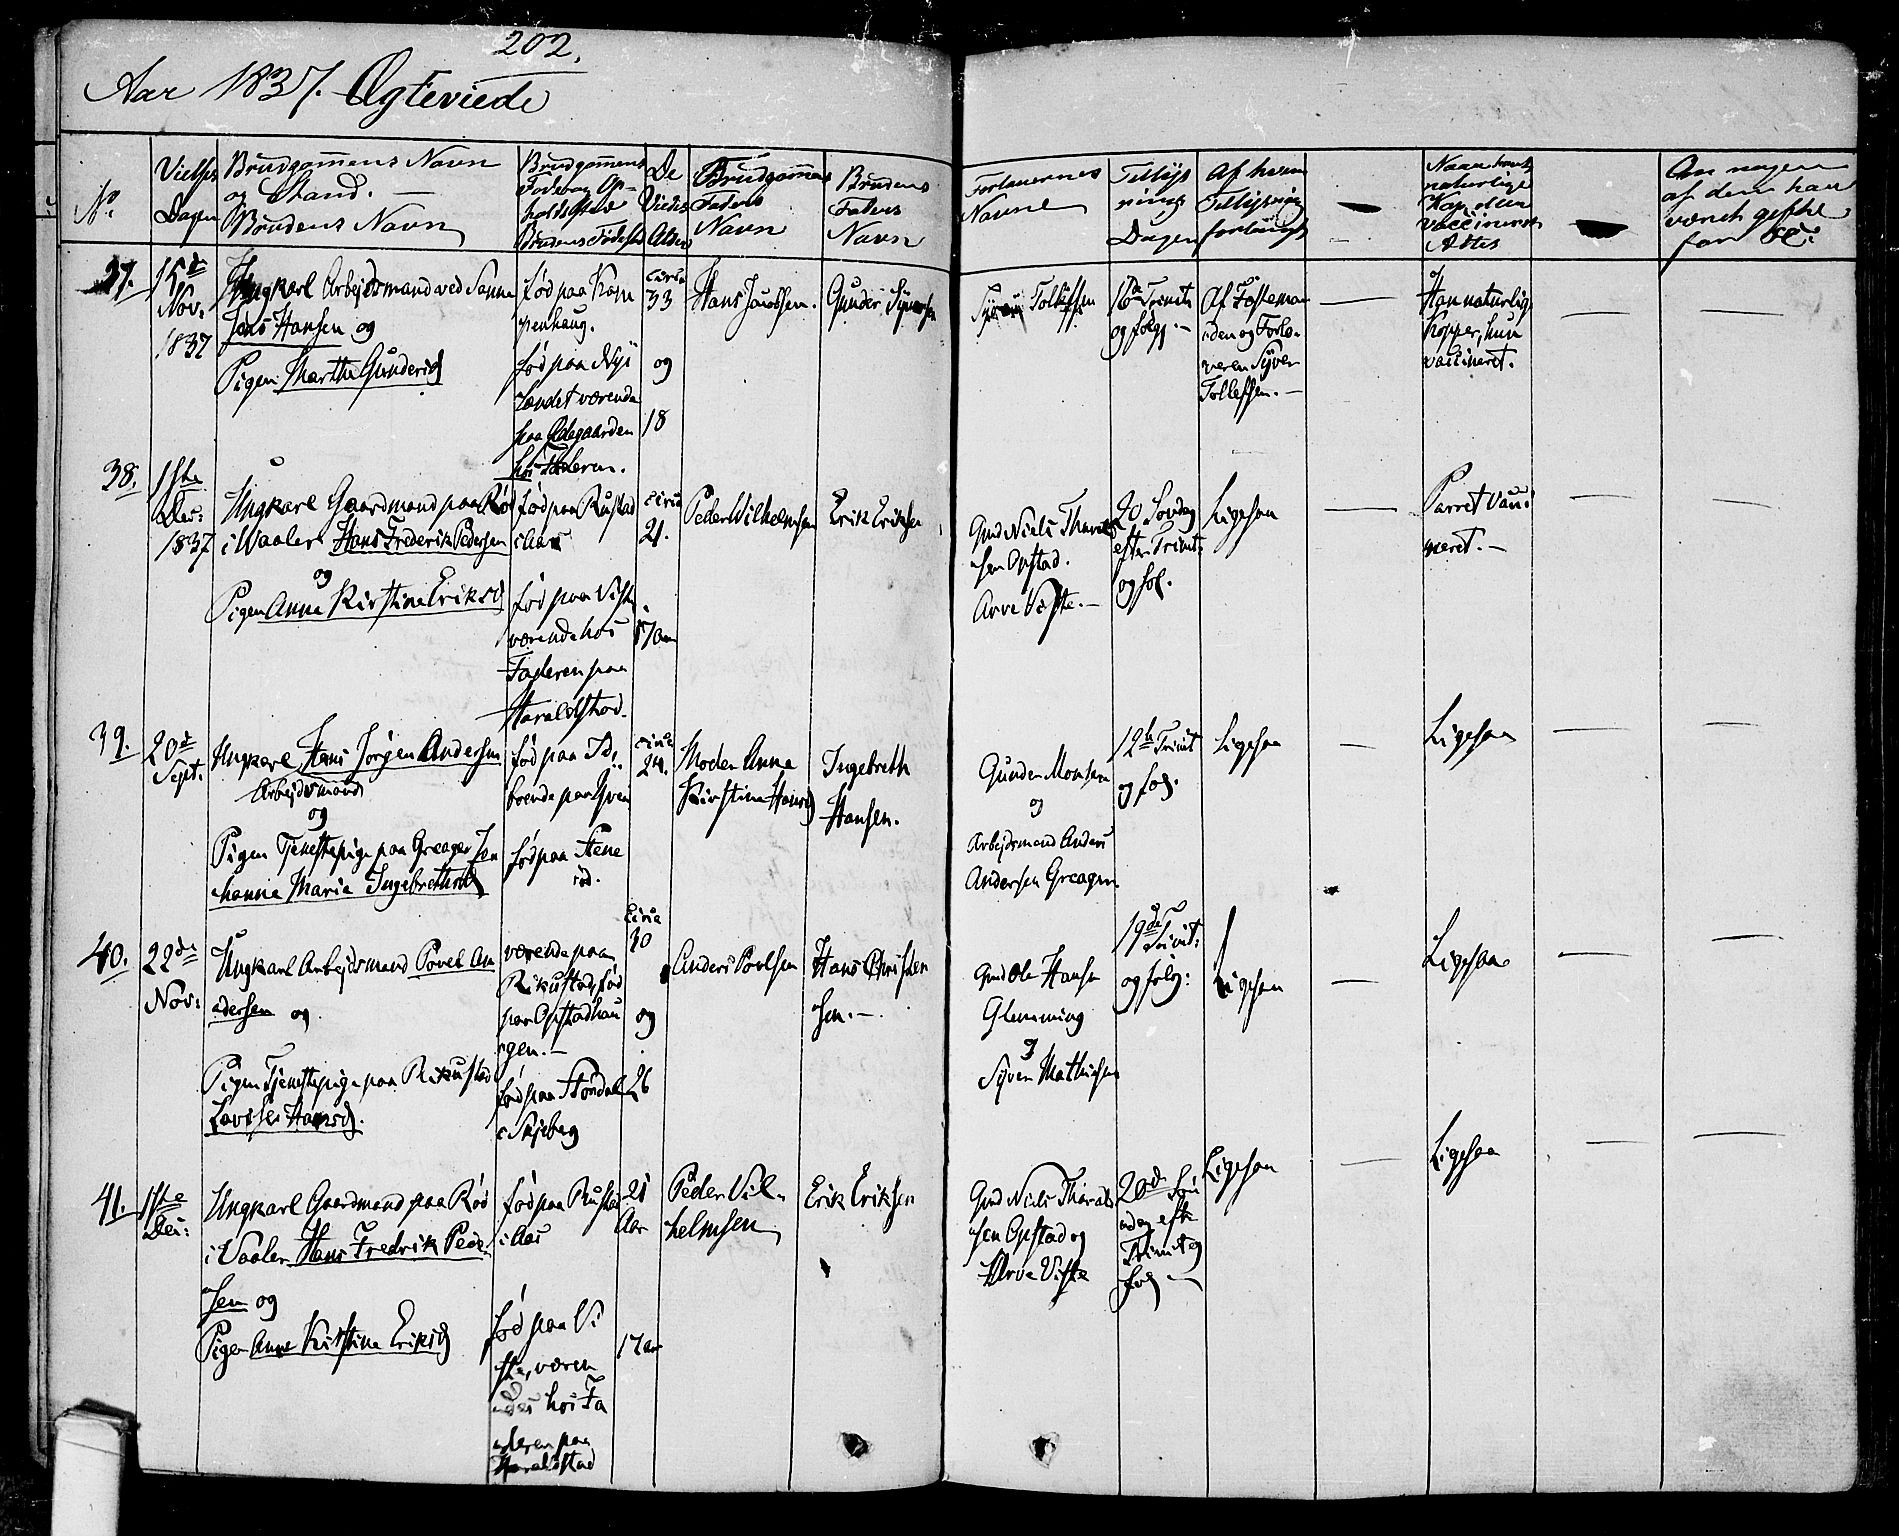 202.
Aar 1837. Ægteviede
No.
Vielses
Dagen
Brudgommens Navn
og Stand. —
Brudens Navn
Brudgommens
Fødested og Op-
holdssted
Brudens Fødested
De
Viedes
Alder
Brudgommens
Faders
Navn
Brudens
Faders
Navn
Forloverens
Navne
Tillys
nings
Dagen
Af hvem
Tillysning
forlangt
naturlige
Kopper eller
vaccineret
Attes
Om nogen
af dem har
været gift
før &c:
37.
15de
Nov.
1837
Ungkarl Arbejdsmand ved Sanne
Jens Hansen og
Pigen Marthe Gundersd
fød paa Kam
penhaug.
fød paa Nye
Landet værende
paa Ødegaarden
hos Faderen.
circa
33
og
18
Hans Janssen.
Gunder Syversen
Syver Tollefsen
16de Trinit
og følg. —
Af Festeman
den og Forlo-
veren Syver
Tollefsen. —
Han naturlig
Kopper, hun
vaccineret.
38.
1ste
Dec:
1837
Ungkarl Gaardmand paa Rød
i Vaaler Hans Frederik Pedersen
og
Pigen Anne Kirstine Eriksd
fød paa Rustad
i Aas
fød paa Viste
værende hos
Faderen paa
Haraldstad.
circa
21.
17 aar
Peder Wilhelmsen
Erik Eriksen
Gmd Niels Thorvald
sen Opstad.
Arve Viste. —
20 Søndag
efter Trinit:
og føl.
Ligesaa
Parret vacci
neret. —
39.
20de
Sept.
Ungkarl Hans Jørgen Andersen
Arbejdsmand
og
Pigen Tjenestepige paa Greager Jo
hanne Marie Ingebrethsd
fød paa
boende paa
fød paa Stene
rød.
circa
24.
Moder Anne
Kirstine Hansd
Ingebreth
Hansen.
Gunder Monsen
og
Arbejdsmand Anders
Andersen Greager
12te Trinit
og følg.
Ligesaa
Ligesaa
40.
22de
Nov:
Ungkarl Arbejdsmand Povel An
dersen og
Pigen Tjenestepige paa Rikustad
Lovise Hansd.
værende paa
Rikustad, fød
paa Opstadhau
gen. —
fød paa Stordal
i Skjeberg
circa
30
og
26
Anders Povelsen
Hans Christen
sen. —
Gmd Ole Hansen
Glemming
og
Syver Mathiesen
19de Trinit:
og følg:
Ligesaa
Ligesaa
41.
1ste
Dec:
Ungkarl Gaardmand paa Rød
i Vaaler Hans Fredrik Peder
sen og
Pigen Anne Kirstine Eriksd
fød paa Rustad
i Aas
fød paa Vi
ste, væren
des hos Fa
deren paa
Haraldstad
21
Aar
17 aar
Peder Vil-
helmsen
Erik Eriksen
Gmd Niels Thorvald
sen Opstad og
Arve Viste
20de Søn
dag efter
Trinit og
følg —
Ligesaa
Ligesaa